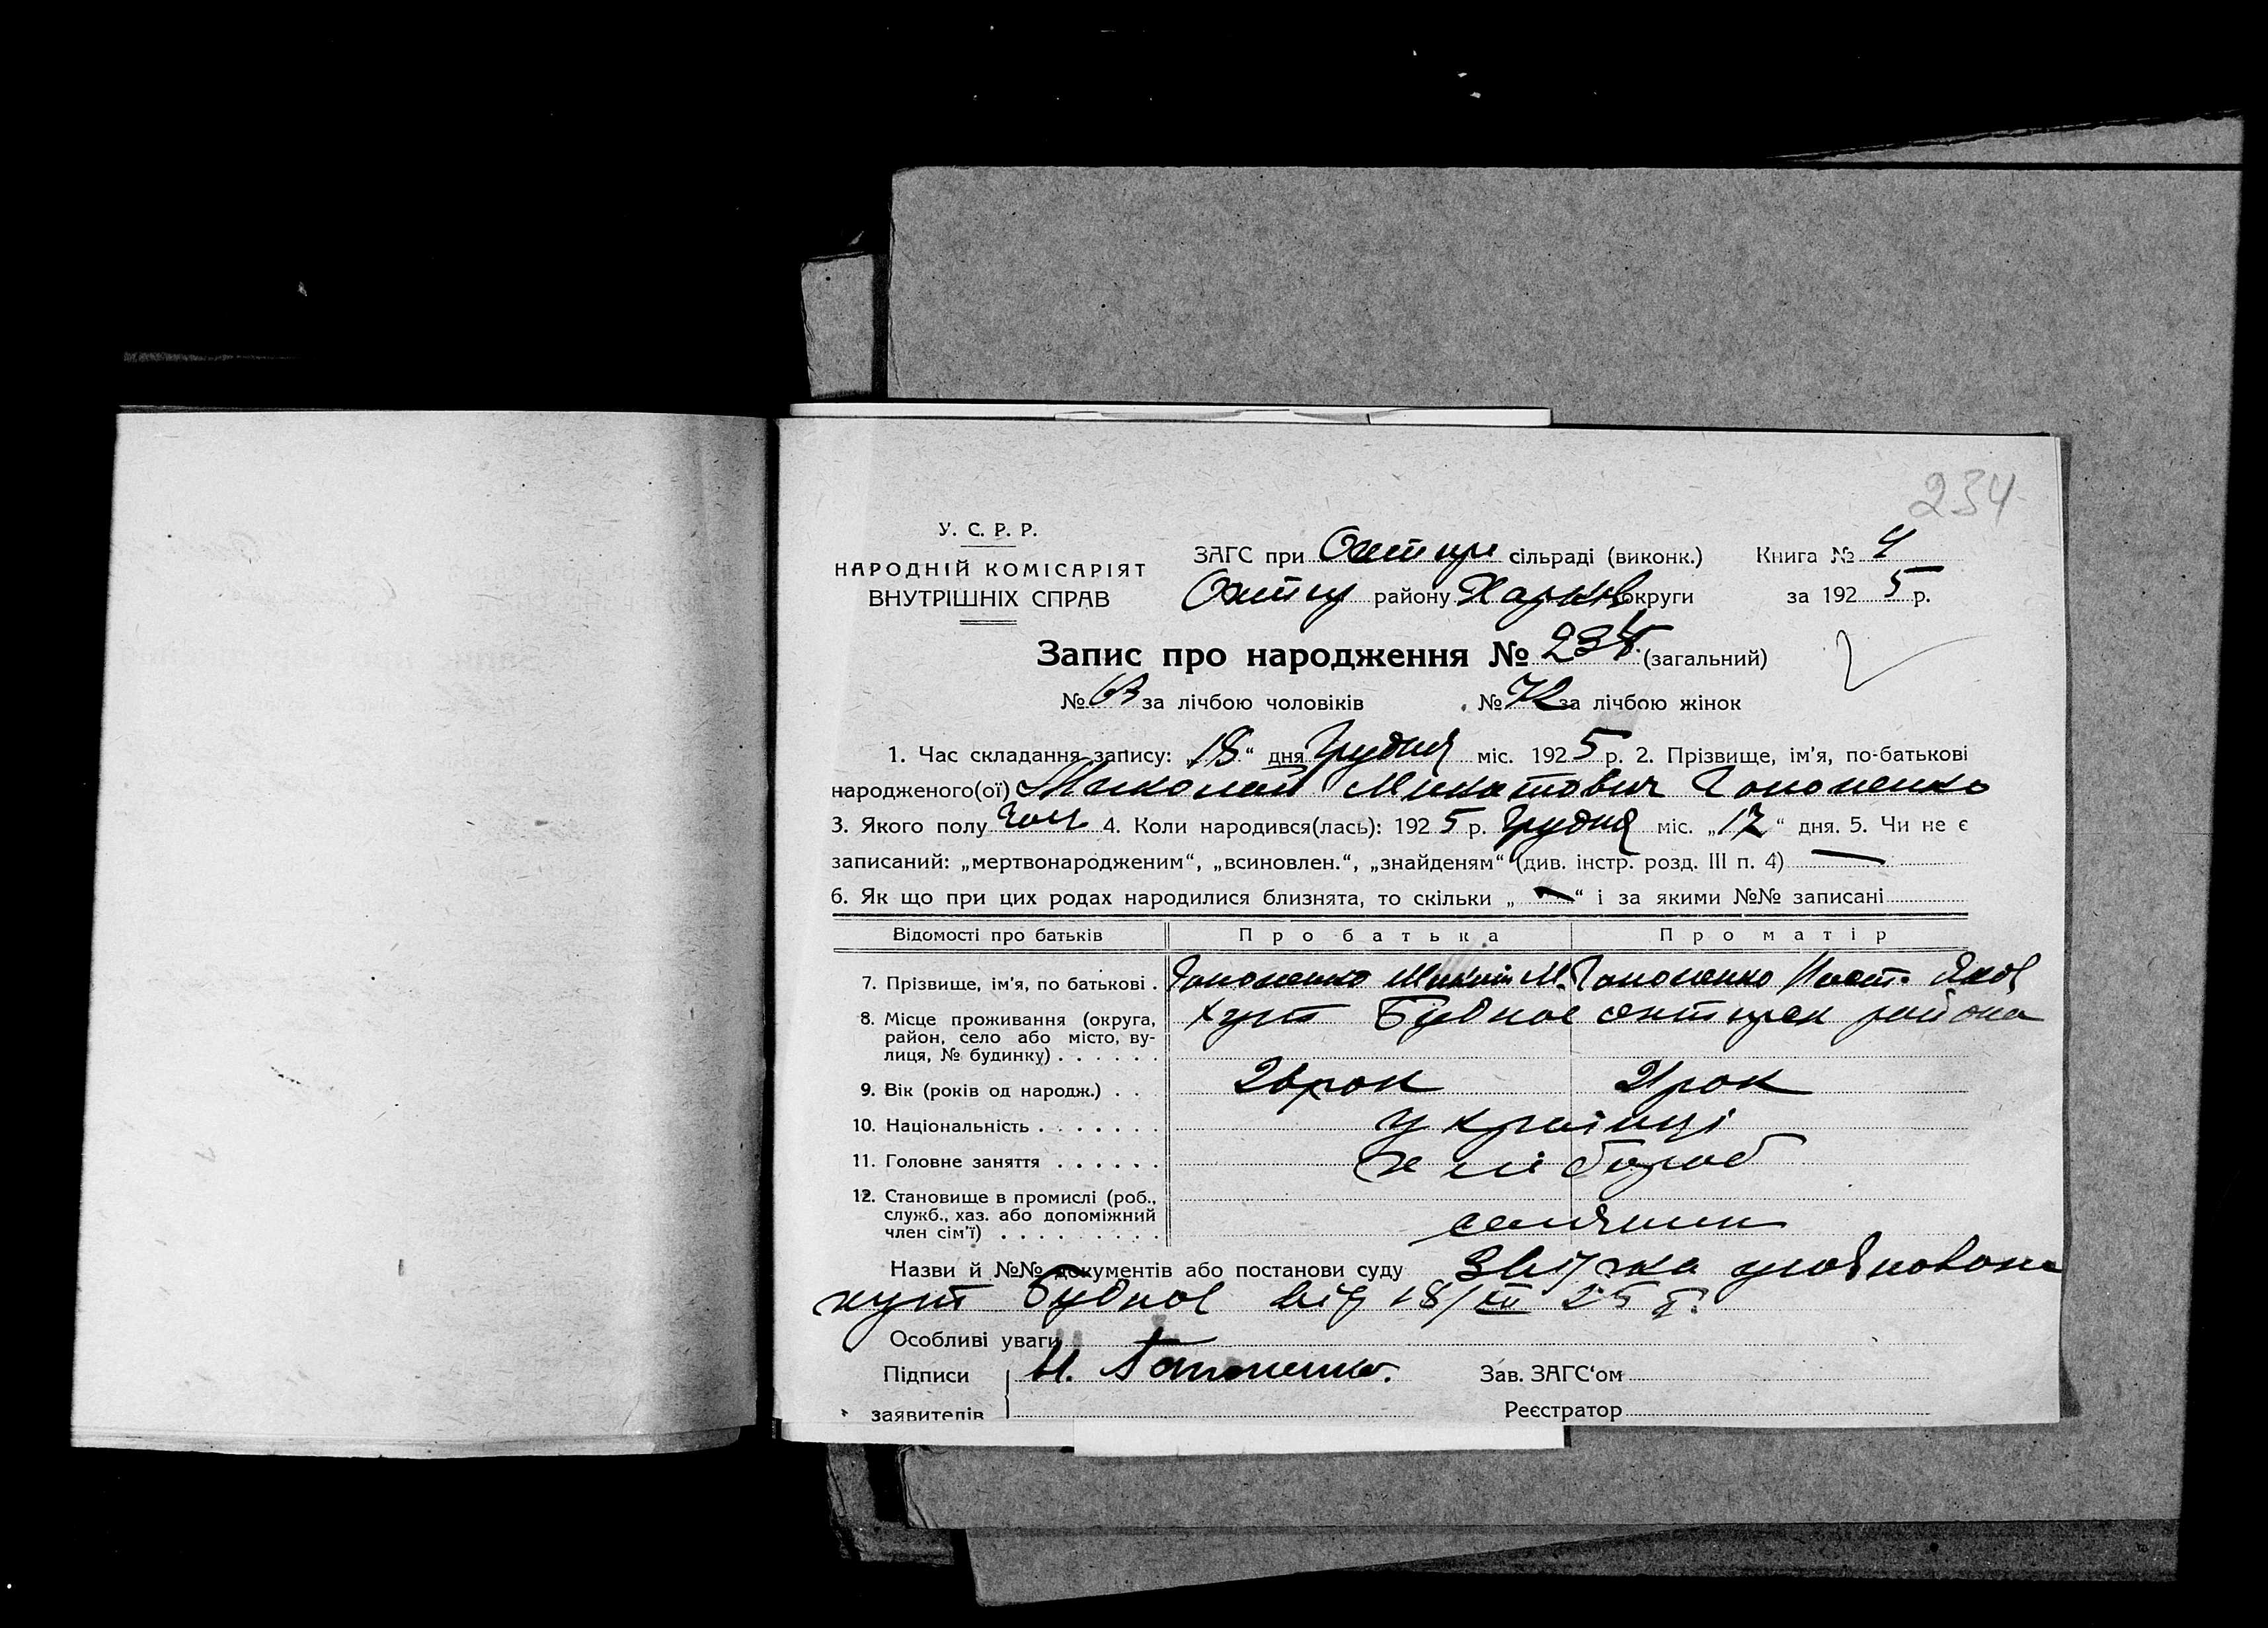 234
У. С. Р. Р.
НАРОДНІЙ КОМІСАРІЯТ
ВНУТРІШНІХ СПРАВ
ЗАГС при Охтир сільраді (виконк.) Книга № 4
Охтир району Харків округи за 1925 р.
Запис про народження № 234 (загальний)
№ за лічбою чоловіків № 72 за лічбою жінок
1. Час складання запису: „18“ дня Грудня міс. 1925 р. 2. Прізвище, ім’я, по-батькові
народженого(ої) Миколай Микитович Гапоненко
3. Якого полу чол 4. Коли народився(лась): 1925 р. Грудня міс. „17“ дня. 5. Чи не є
записаний: „мертвонародженим“, „всиновлен.“, „знайденям“ (див. інстр. розд. III п. 4) —
6. Як що при цих родах народилися близнята, то скільки „—“ і за якими №№ записані
Відомості про батьків Про батька Про матір
7. Прізвище, ім’я, по батькові . Гапоненко Микит М. Гапоненко Наст. Яков
8. Місце проживання (округа, район, село або місто, вулиця, № будинку) . . . . . . хут Будное охтирск района
9. Вік (років од народж.) . . . 26 рок 21 рок
10. Національність . . . . . . . українці
11. Головне заняття . . . . . . хлібороб
12. Становище в промислі (роб., служб., хаз. або допоміжний член сім’ї) . . . . . . . . . селянин
Назви й №№ документів або постанови суду Звістка уповновон
хут Будное від 18/XII 25 р.
Особливі уваги
Підписи Н. Гапоненко. Зав. ЗАГС‘ом
заявителів Реєстратор